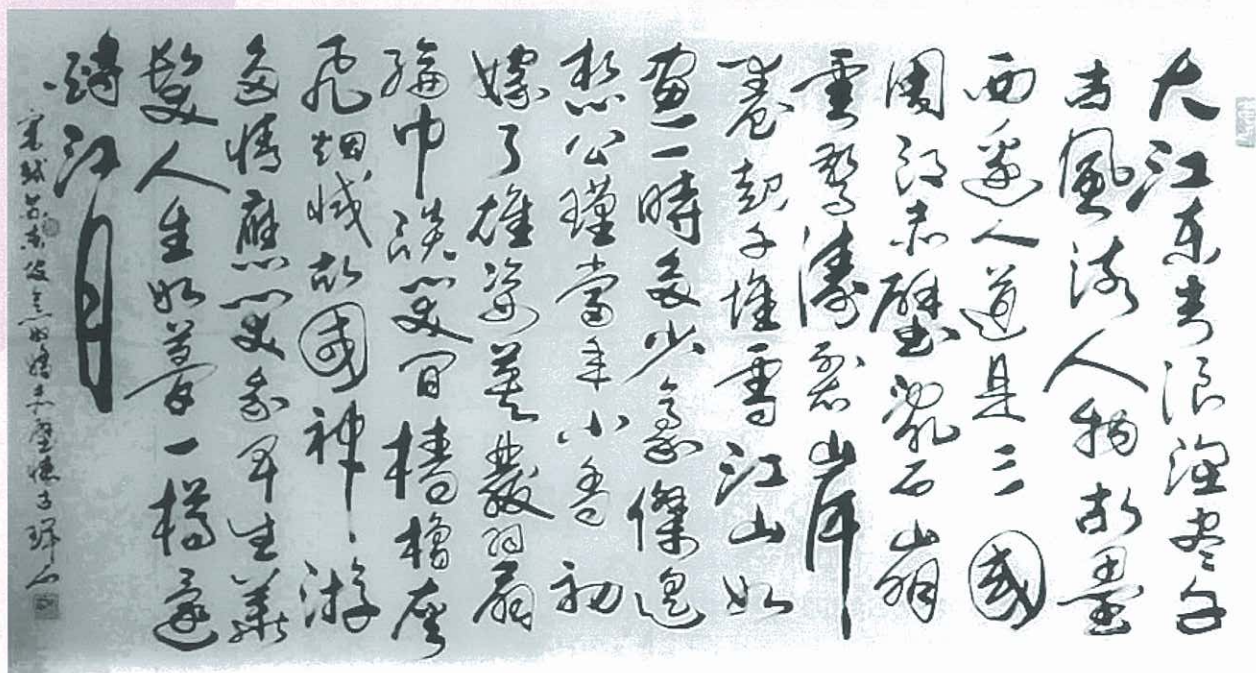 大江東去浪淘尽千
古風流人物故壘
西邊人道是三國
周郎赤壁亂石崩
雲驚濤裂岸
卷起千堆雪江山如
畫一時多少豪傑遥
想公瑾當年小喬初
嫁了雄姿英發羽扇
綸巾談笑間檣櫓灰
飛烟滅故國神游
多情應笑我早生華
髮人生如夢一樽還
酹江月
蘇東坡念奴嬌赤壁懷古